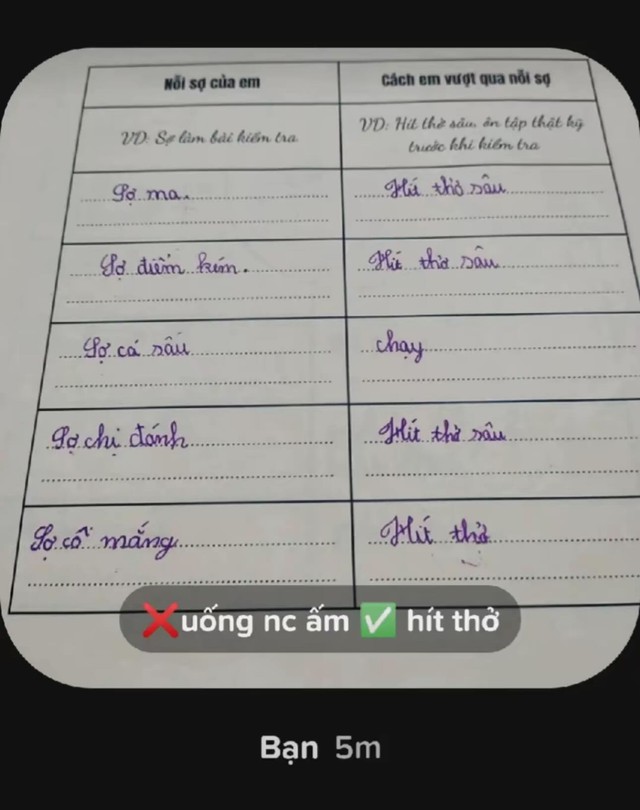 Nỗi sợ của em
Cách em vượt qua nỗi sợ
VD: Sợ làm bài kiểm tra
VD: Hít thở sâu, ôn tập thật kỹ
trước khi kiểm tra
Sợ ma.
Hít thở sâu
Sợ điểm kém.
Hít thở sâu
Sợ cá sấu
chạy
Sợ chị đánh
Hít thở sâu
Sợ cô mắng
Hít thở
❌uống nc ấm ✅ hít thở
Bạn 5m